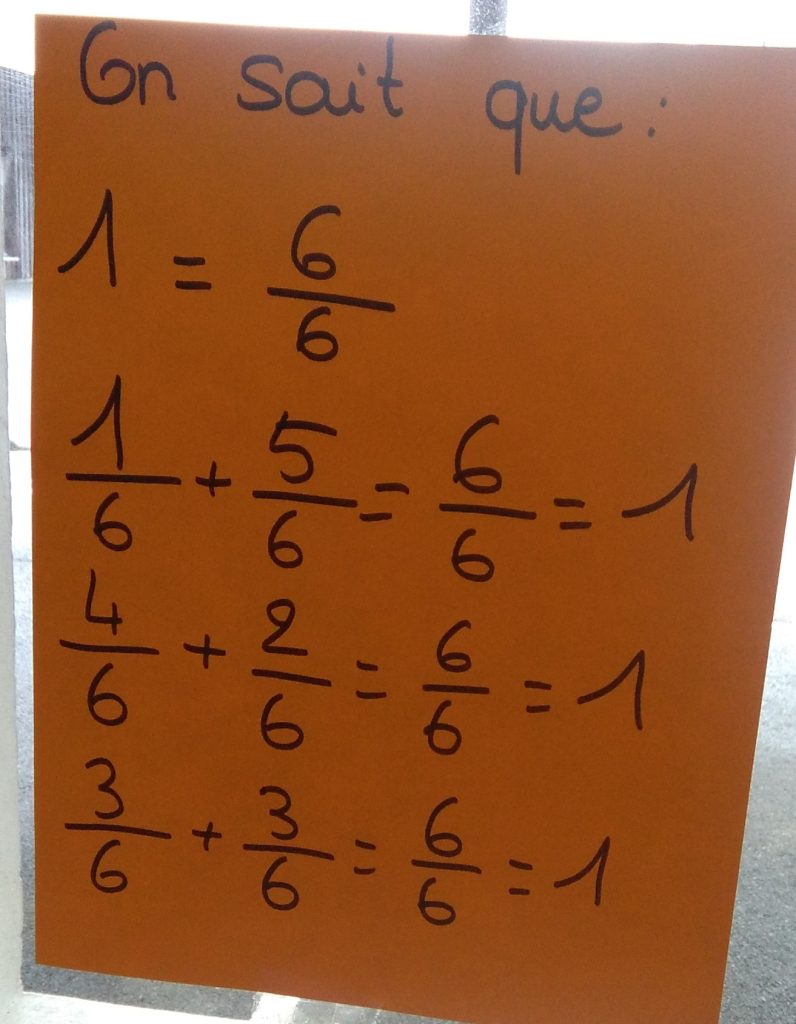 On sait que :
1 = 6/6
1/6 + 5/6 = 6/6 = 1
4/6 + 2/6 = 6/6 = 1
3/6 + 3/6 = 6/6 = 1